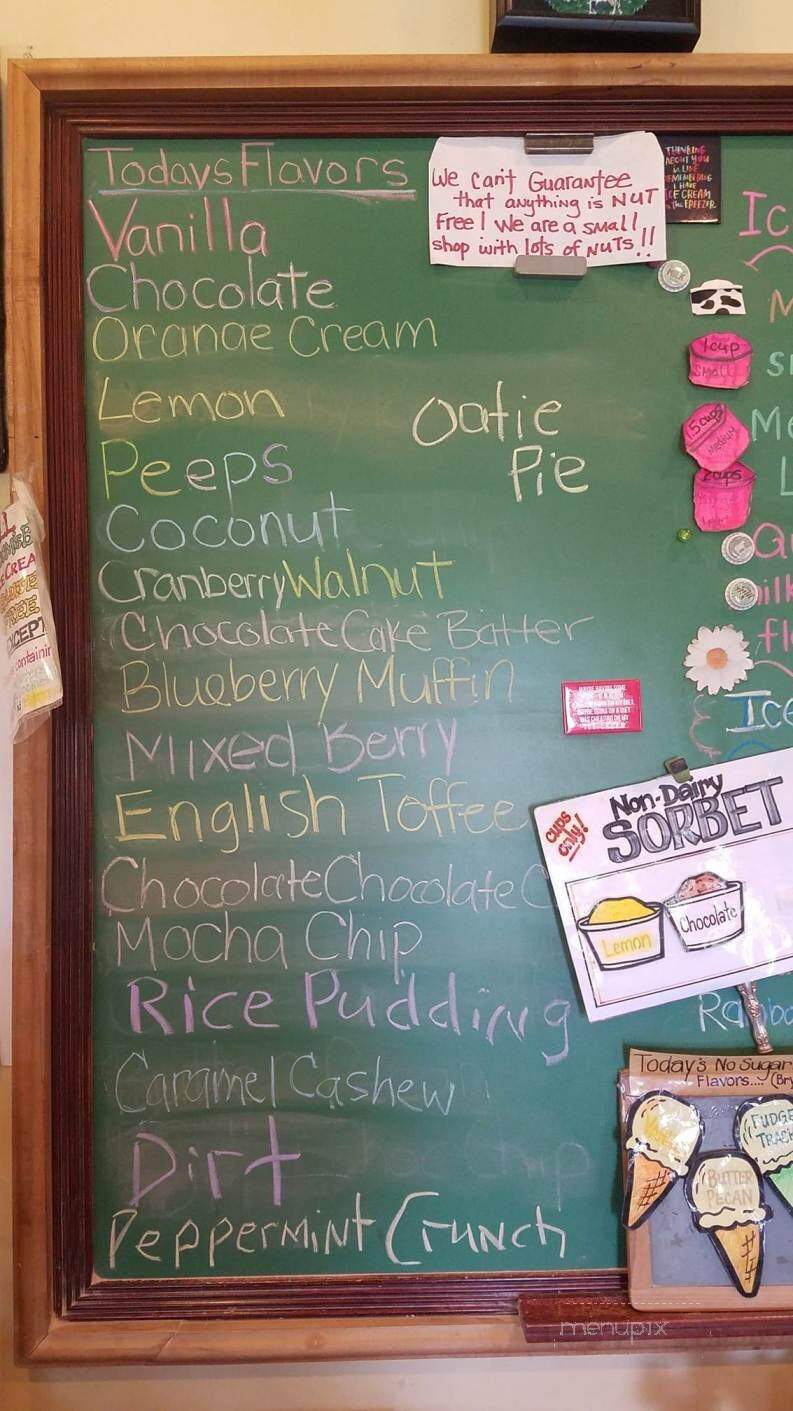 Todays Flavors
Vanilla
Chocolate
Orange Cream
Lemon
Oatie
Pie
Peeps
Coconut
Cranberry Walnut
Chocolate Cake Batter
Blueberry Muffin
Mixed Berry
English Toffee
Chocolate Chocolate C
Mocha Chip
Rice Pudding
Caramel Cashew
Dirt
Peppermint Crunch
We can't Guarantee
that anything is NUT
Free! We are a small
shop with lots of NUTS!!
THINKING
ABOUT YOU
is LIKE
REMEMBERING
I HAVE
ICE CREAM
in The FREEZER
Ic
M
1 cup
SMALL
1.5 cups
Medium
Me
2 cups
L
Qu
ilk
fl
Ice
cups
only!
Non-Dairy
SORBET
Lemon
Chocolate
Today's No Sugar
Flavors.... (Bry
FUDGE
TRACK
BUTTER
PECAN
CREA
containin
menupix